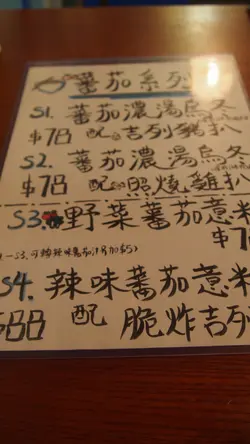 蕃茄系列
S1. 蕃茄濃湯烏冬
$78 配 吉列豬扒
S2. 蕃茄濃湯烏冬
$78 配 照燒雞扒
S3. 野菜蕃茄意粉
$7
S4. 辣味蕃茄意粉
$88 配 脆炸吉列